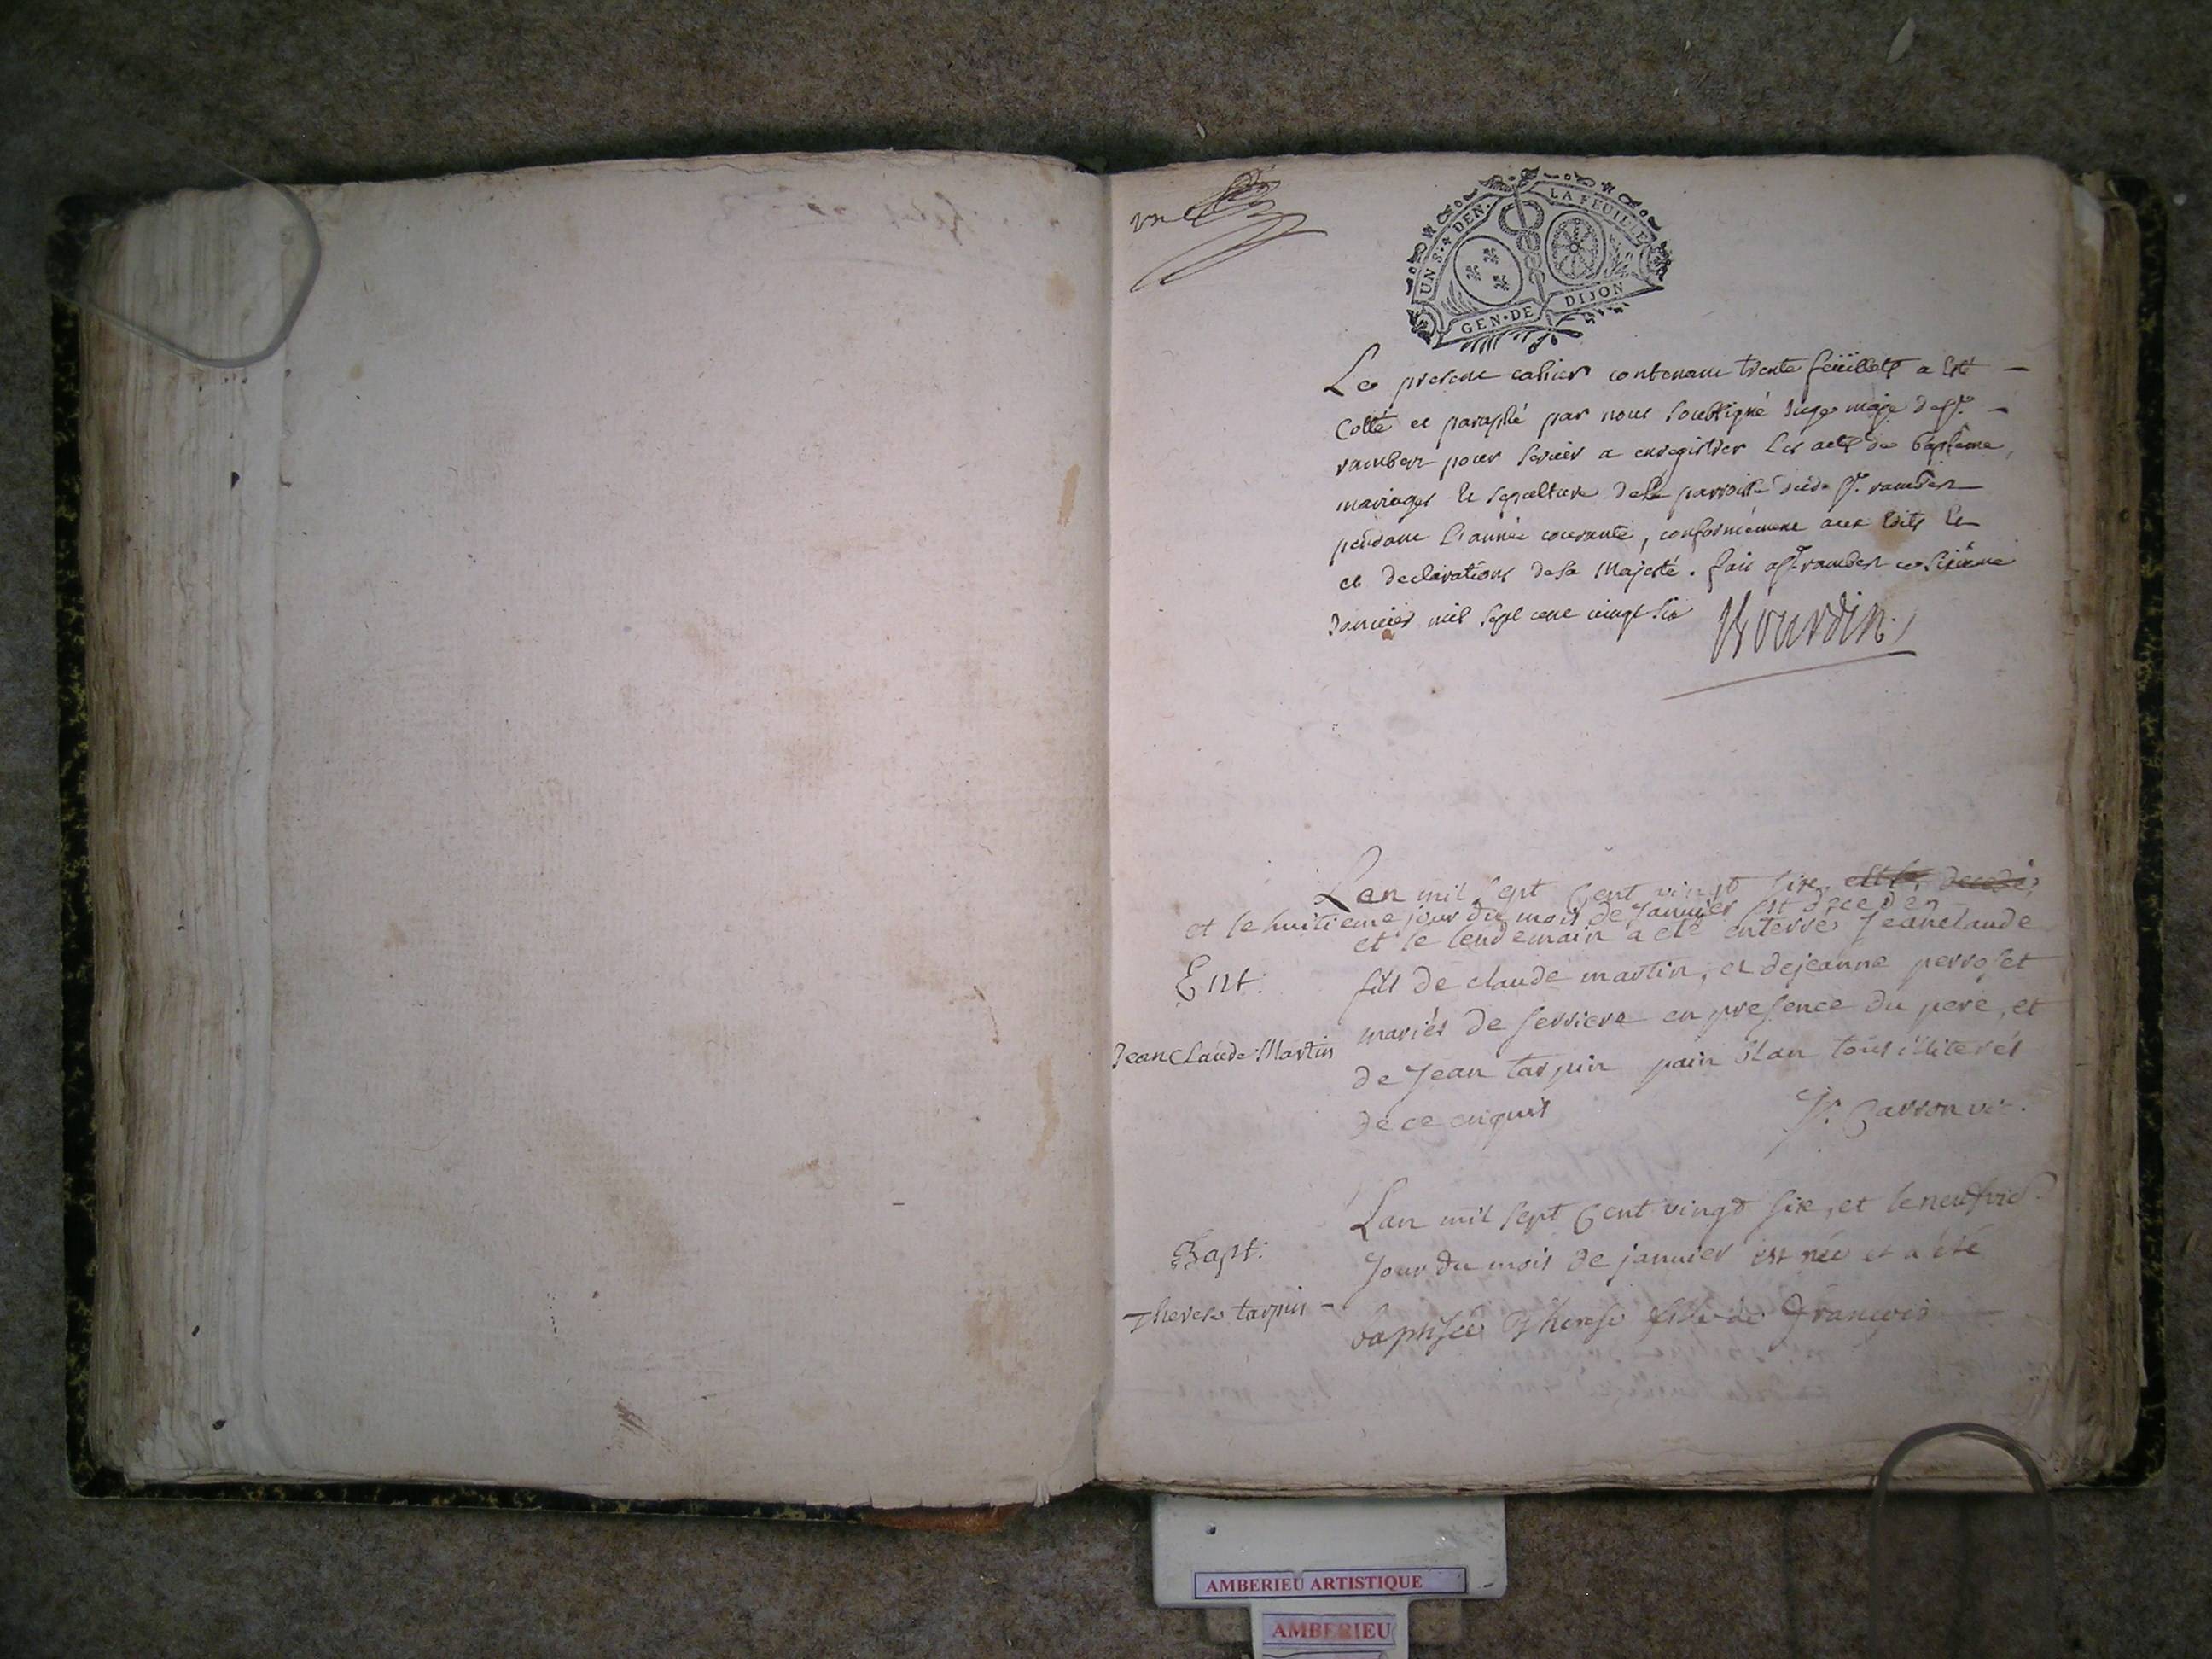 un
UN S. 4 DEN. LA FEUILLE
GEN. DE DIJON
Le present cahier contenant trente feüillets a esté
Cotté et paraphé par nous soubsigné Juge maje de St.
rambert pour servir a enregistrer les actes de baptême,
mariages et sepulture de la parroisse dudt St. rambert
pendant l'année courante, conformément aux Edits Et
et declarations de sa Majesté. fait a St. rambert ce sixième
Janvier mil sept cent vingt six Bourdin
Lan mil sept Cent vingt six
et le huitieme jour du mois de Janvier est decedez
et le lendemain a eté enterré Jeanclaude
Ent:
fils de claude martin, et de jeanne perroset
mariés de serriere en presence du pere, et
Jean Claude Martin
de Jean tarpin pain blan tous illiterés
de ce enquis
Carron vic.
Lan mil sept Cent vingt six, et le neufvie
Bapt:
Jour du mois de janvier est née et a été
Therese tarpin
baptisée Therese fille de François
AMBERIEU ARTISTIQUE
AMBERIEU